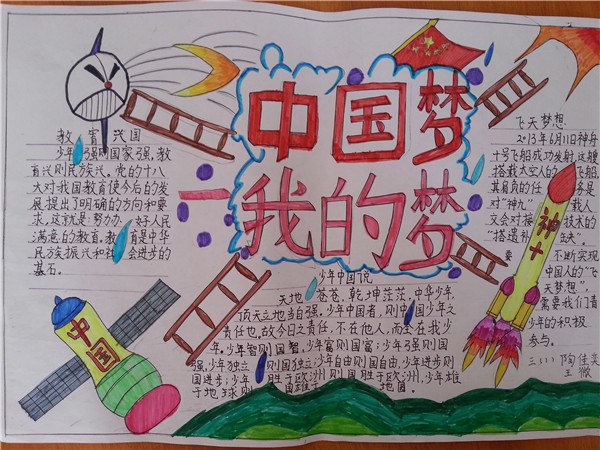 中国梦
我的梦
教育兴国
少年强则国家强,教
育兴则民族兴。党的十八
大对我国教育使今后的发
展提出了明确的方向和要
求,这就是:努力办 好人民
满意的教育。教育是中华
民族振兴和社会进步的
基石。
飞天梦想
2013年6月11日神舟
十号飞船成功发射,这艘
搭载太空人的飞船,
其肩负的任务是
对"神九"载人
交会对接技术的
"拾遗补缺"。
要不断实现
中国人的"飞
天梦想",
需要我们青
少年的积极
参与。
三(1) 陶佳奕
王
神十
中国
少年中国说
天地苍苍,乾坤茫茫,中华少年,
顶天立地当自强。少年中国者,则中国少年之
责任也。故今日之责任,不在他人,而全在我少
年。少年智则国智,少年富则国富;少年强则国
强,少年独立则国独立;少年自由则国自由,少年进步则
国进步;少年胜于欧洲则国胜于欧洲,少年雄
于地球则国雄于地